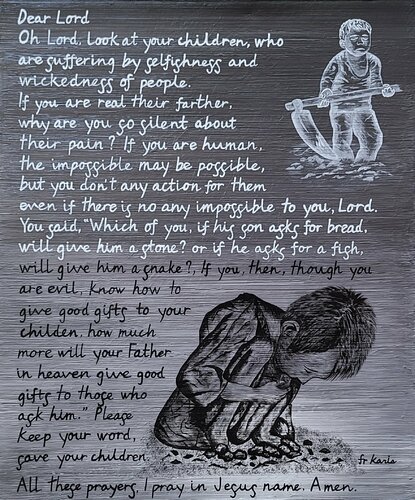 Dear Lord
Oh Lord, Look at your children, who
are suffering by selfishness and
wickedness of people.
If you are real their farther,
why are you so silent about
their pain? If you are human,
the impossible may be possible,
but you don't any action for them
even if there is no any impossible to you, Lord.
You said, "Which of you, if his son asks for bread,
will give him a stone? or if he asks for a fish,
will give him a snake?, If you, then, though you
are evil, know how to
give good gifts to your
childen, how much
more will your Father
in heaven give good
gifts to those who
ask him." Please
keep your word,
save your children.
fr Karla
All these prayers, I pray in Jesus name. Amen.